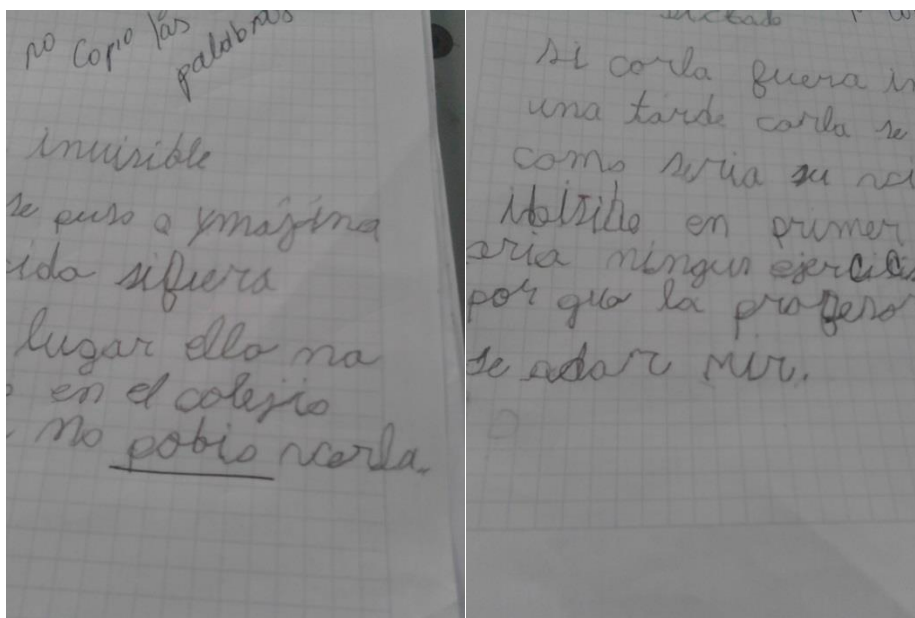 no copio las
palabras
invisible
se puso a ymajina
ida sifuera
lugar ella na
en el colejio
no pobio verla.
dictado
si carla fuera in
una tarde carla se
como seria su vi
en primer
aria ningun ejercici
por que la profesor
se adar mir.